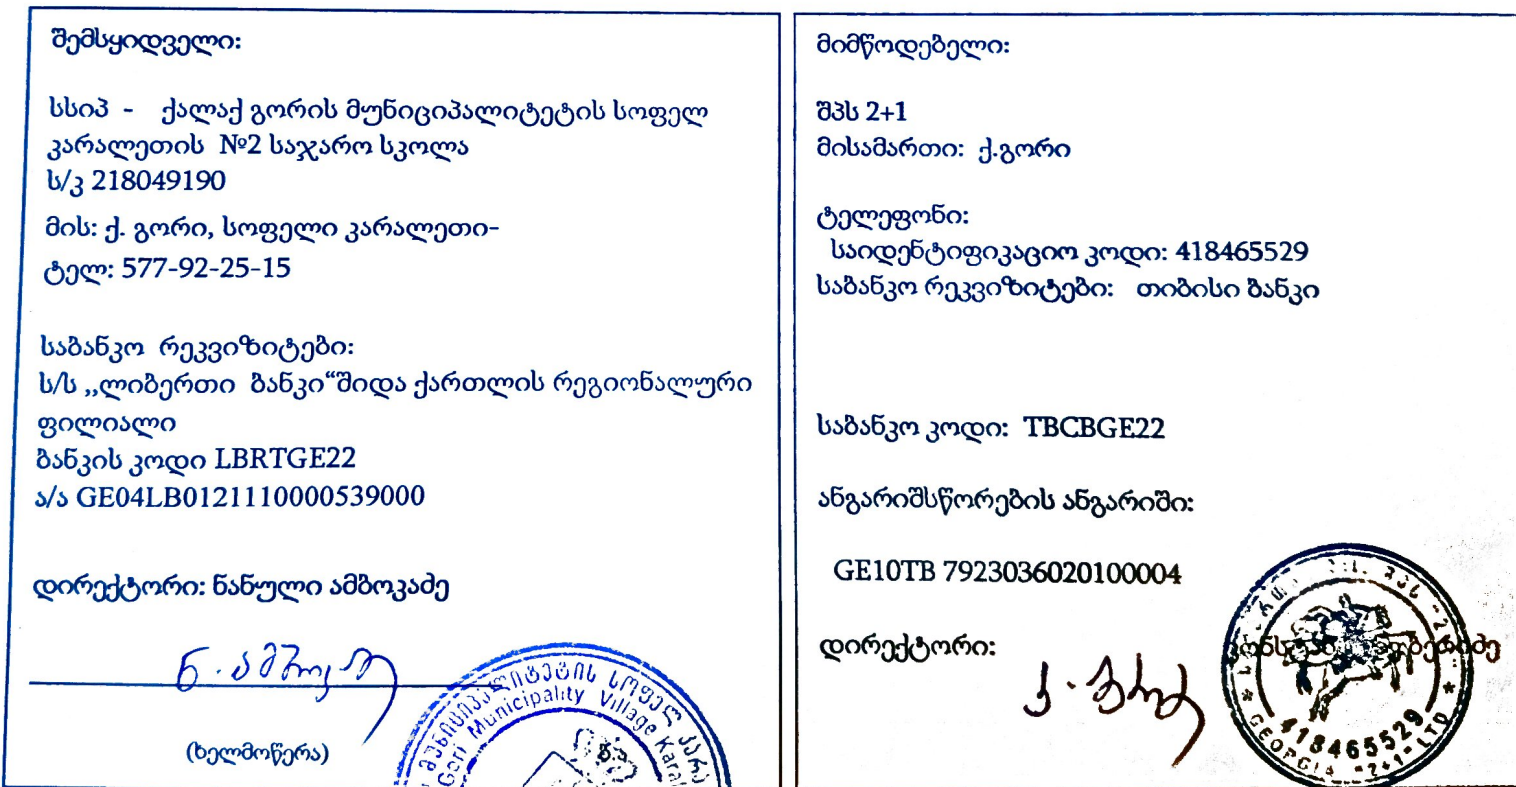 შემსყიდველი:
სსიპ - ქალაქ გორის მუნიციპალიტეტის სოფელ
კარალეთის №2 საჯარო სკოლა
ს/კ 218049190
მის: ქ. გორი, სოფელი კარალეთი-
ტელ: 577-92-25-15
საბანკო რეკვიზიტები:
ს/ს ,,ლიბერთი ბანკი“შიდა ქართლის რეგიონალური
ფილიალი
ბანკის კოდი LBRTGE22
ა/ა GE04LB0121110000539000
დირექტორი: ნანული ამბოკაძე
(ხელმოწერა)
მუნიციპალიტეტის სოფელ კარა
Gori Municipality Village Karal
მიმწოდებელი:
შპს 2+1
მისამართი: ქ.გორი
ტელეფონი:
საიდენტიფიკაციო კოდი: 418465529
საბანკო რეკვიზიტები: თიბისი ბანკი
საბანკო კოდი: TBCBGE22
ანგარიშსწორების ანგარიში:
GE10TB 7923036020100004
დირექტორი:
418465529
GEORGIA "2+1" LTD